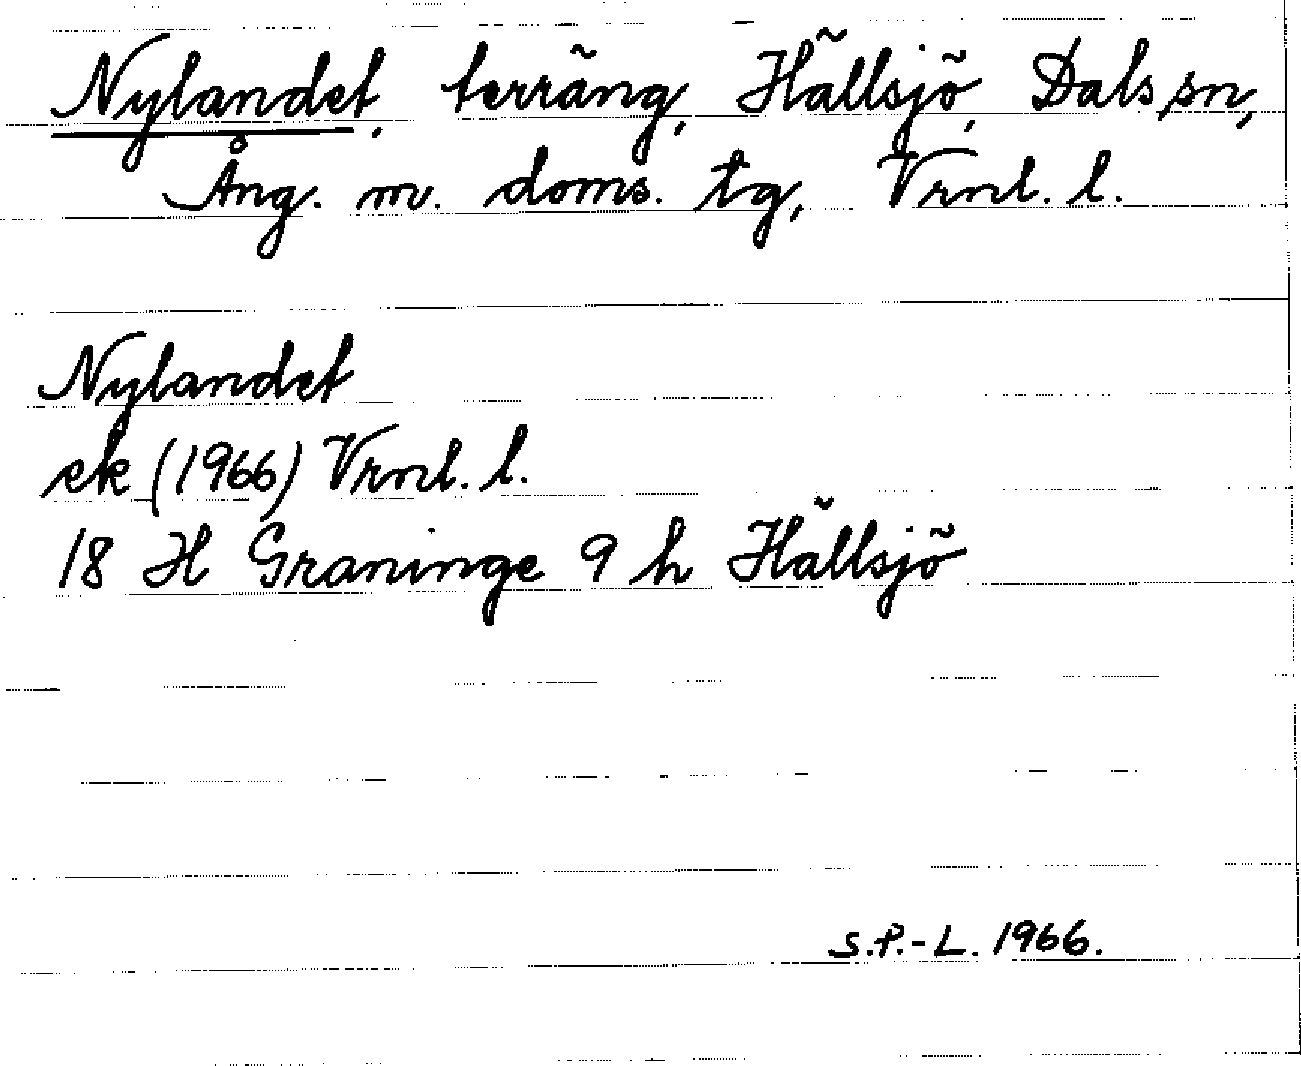 Nylandet, terräng, Hällsjö, Dals sn,
Ång. m. doms. tg, Vrnl. l.
Nylandet
ek (1966) Vrnl. l.
18 H Graninge 9 h Hällsjö
S.P.-L. 1966.